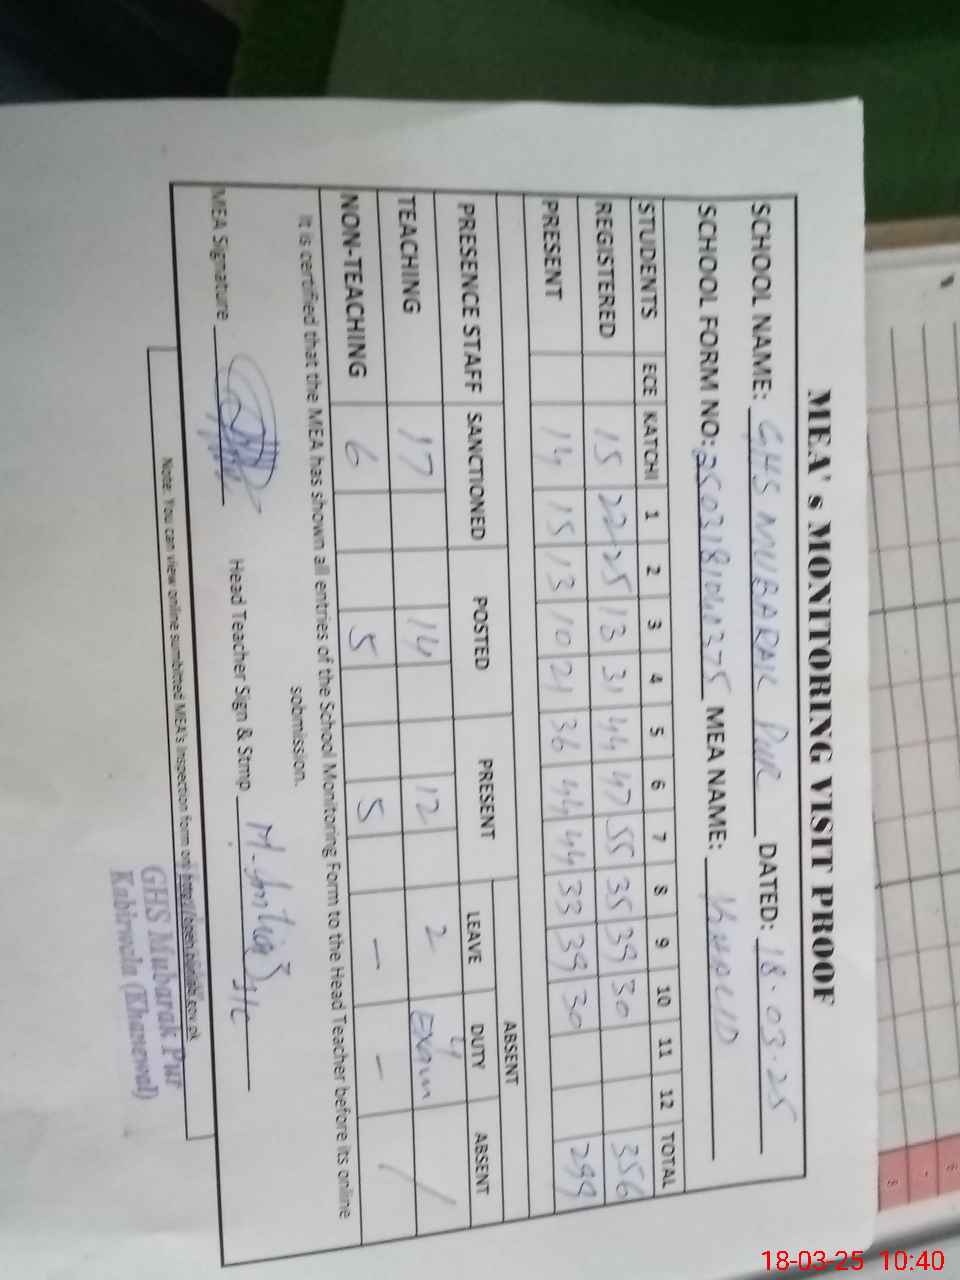 MEA's MONITORING VISIT PROOF
SCHOOL NAME: GHS MUBARAK PUR DATED: 18.03.25
SCHOOL FORM NO: MEA NAME: KHALID
STUDENTS ECE KATCHI 1 2 3 4 5 6 7 8 9 10 11 12 TOTAL
REGISTERED 15 22 25 13 31 44 47 55 35 39 30 356
PRESENT 14 15 13 10 21 36 44 44 33 39 30 299
ABSENT
PRESENCE STAFF SANCTIONED POSTED PRESENT LEAVE DUTY ABSENT
TEACHING 17 14 12 2 4 Exam /
NON-TEACHING 6 5 5 – –
It is certified that the MEA has shown all entries of the School Monitoring Form to the Head Teacher before its online
submission.
MEA Signature Head Teacher Sign & Stmp
Note: You can view online sumbitted MEA's inspection form on
GHS Mubarak Pur
Kabirwala (Khanewal)
6
7
8
18-03-25 10:40